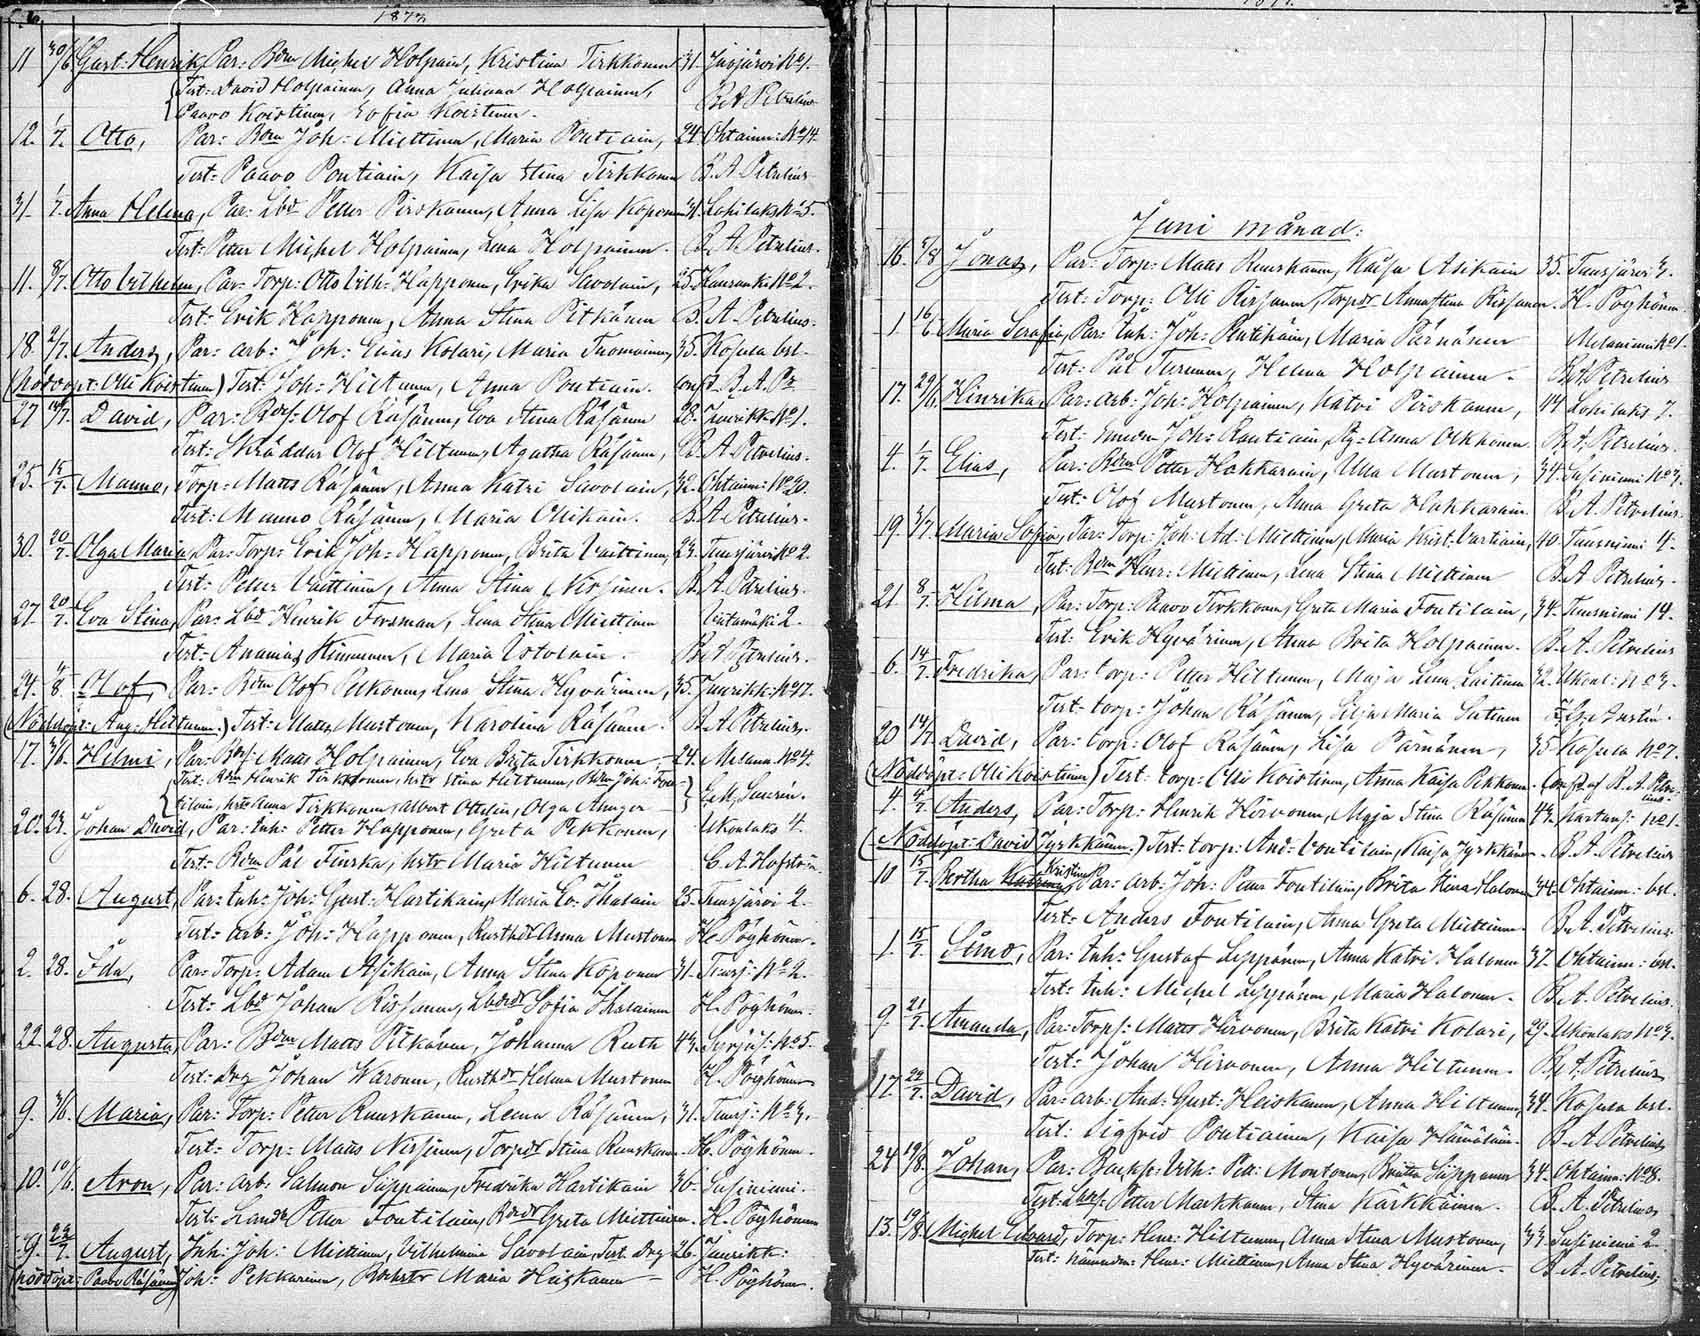 6.
1877.
11 30/6 Gust: Henrik, Par: Bdn Michel Holpain, Kristina Tirkkonen 31. Juojärvi No 1.
Test: David Holpainen, Anna Juliana Holpainen, B. A. Petrelius
Paavo Koistinen, Sofia Koistinen.
12. 1/7. Otto, Par: Bdn Joh: Miettinen, Maria Pontiain, 24. Ohtaim: No 14.
Test: Paavo Pontiain, Kaisa Stina Tirkkonen B. A. Petrelius.
31. 1/7. Anna Helena, Par: Lbd Petter Pirskanen, Anna Lisa Koponen 31. No 5.
Test: Petter Michel Holpainen, Lena Holpainen. B. A. Petrelius.
11. 8/7. Otto Vilhelm, Par: Torp: Otto Vilh: Happonen, Erika Savolain, 25. No 2.
Test: Erik Happonen, Anna Stina Pitkänen B. A. Petrelius.
18. 2/7. Anders, Par: arb: Joh: Elias Kolari, Maria Tuomainen, 35. Kosula bst.
(Nöddöpt: Olli Koistinen) Test: Joh: Hiltunen, Anna Pontiain. conf. B. A. P.
27 David, Par: Olof Räsänen, Eva Stina Räsänen 28. No 1.
Test: Skräddar Olof Hiltunen, Agatha Räsänen, B. A. Petrelius.
25. 15/7. Manno, Torp: Matts Räsänen, Anna Katri Savolain, 32. Ohtaim: No 20.
Test: Manno Räsänen, Maria Ollikain. B. A. Petrelius.
30. 20/7. Olga Maria, Par: Torp: Erik Joh: Happonen, Brita Vaittinen, 23. Tuusjärvi No 2.
Test: Petter Vaittinen, Anna Stina Nissinen. B. A. Petrelius.
27. 20/7. Eva Stina, Par: Lbd Henrik Forsman, Lena Stina Miettinen 2.
Test: Ananias Kinnunen, Maria B. A. Petrelius.
24. 4/8. Olof, Par: Bdn Olof Pekkonen, Lena Stina Hyvärinen, 35. Juurikk: No 17.
(Nöddöpt: Aug: Hiltunen.) Test: Matts Mustonen, Karolina Räsänen. B. A. Petrelius.
17. 3/6. Helmi, Par: Matts Holpainen, Eva Brita Tirkkonen 24. Melann. No 4.
Test: Bdn Henrik Tirkkonen, hstr Stina Hiltunen, Bdn Joh: Fon-
tilain, hstr Anna Tirkkonen, Albert Ottelin, Olga
20. 23. Johan David, Par: Inh: Petter Happonen, Greta Pekkonen, Ukonlaks 4.
Test: Bdn Pål Finska, hstr Maria Hiltunen C. A. Hofström
6. 28. August, Par: Inh: Joh: Gust: Hartikain, Maria Ihalain 25. Tuusjärvi 2.
Test: arb: Joh: Happonen, Anna Mustonen H. Pöyhönen.
2. 28. Ida, Par: Torp: Adam Asikain, Anna Stina Koponen 31. Tuusj: No 2.
Test: Lbd Johan Rissanen, Sofia Ihalainen H. Pöyhönen.
22. 28. Augusta, Par: Bdn Matts Pitkänen, Johanna Ruth 43. No 5.
Test: Drg Johan Waronen, Helena Mustonen H. Pöyhönen
9. 3/6. Maria, Par: Torp: Petter Ruuskanen, Leena Räsänen, 31. Tuusj: No 3.
Test: Torp: Matts Nissinen, Stina Ruuskanen. H. Pöyhönen.
10. 10/6. Aron, Par: arb: Salmon Siippainen, Fredrika Hartikain 36. Susiniemi.
Test: Petter Fontilain, Greta Miettinen. H. Pöyhönen
9. 22/7. August, Inh: Joh: Miettinen, Vilhelmina Savolain, Test: Drg 26. Juurikk:
(Nöddöpt: Paavo Räsänen) Joh: Pekkarinen, Maria Heiskanen H. Pöyhönen.
Juni månad:
16. Jonas, Par: Torp: Matts Ruuskanen, Kaisa Asikain 35. Tuusjärvi 3.
Test: Torp: Olli Rissanen, Anna Stina Rissanen. H. Pöyhönen.
1. 16/6. Maria Serafia, Par: Inh: Joh: Maria Pärnänen Melaniemi No 1.
Test: Pål Turunen, Helena Holpainen. B. A. Petrelius
17. 29/6. Hinrika, Par: arb: Joh: Holpainen, Katri Pirskanen, 44 7.
Test: Joh: Rautiain, Anna Okkonen B. A. Petrelius.
4. 1/7. Elias, Par: Bdn Petter Hakkarain, Ulla Mustonen, 34. Susiniemi No 3.
Test: Olof Mustonen, Anna Greta Hakkarain B. A. Petrelius.
19. 3/7. Maria Sofia, Par: Torp: Joh: Ad: Miettinen, Maria Krist: Vartiain, 40. Tuusniemi 4.
Test: Bdn Henr: Miettinen, Lena Stina Miettinen B. A. Petrelius.
21. 8/7. Hilma, Par: Torp: Paavo Tirkkonen, Greta Maria Fontilain, 34. Tuusniemi 14.
Test: Erik Hyvärinen, Anna Brita Holpainen. B. A. Petrelius
6. 14/7. Fredrika, Par: torp: Petter Hiltunen, Maja Lena Laitinen 32. Ukonl: No 3.
Test: torp: Johan Räsänen, Silja Maria
20 14/7 David, Par: torp: Olof Räsänen, Lisa Pärnänen, 35 Kosula No 7.
(Nöddöpt: Olli Koistinen) Test: torp: Olli Koistinen, Anna Kaisa Pekkonen. Conf. af B. A. Petre-
lius.
4. 4/7. Anders, Par: Torp: Henrik Hirvonen, Maja Stina Räsänen 44. No 1.
(Nöddöpt: David Jyrkkänen.) Test: torp: And: Voutilain, Kaisa Jyrkkänen. B. A. Petrelius
10 15/7. Bertha Kristina, Par: arb: Joh: Petter Fontilain, Brita Stina Halonen 34. Ohtaim: bst.
Test: Anders Fontilain, Anna Greta Miettinen. B. A. Petrelius.
1. 15/7. Stina, Par: Inh: Gustaf Lippänen, Anna Katri Halonen 37. Ohtaim:
Test: Inh: Michel Lippänen, Maria Halonen. B. A. Petrelius.
9. 21/7. Amanda, Par: Torp: Matts Hirvonen, Brita Katri Kolari, 29. Ukonlaks No 3.
Test: Johan Hirvonen, Anna Hiltunen. B. A. Petrelius
17 22/7. David, Par: arb: And: Gust: Heiskanen, Anna Hiltunen, 34. Kosula bst.
Test: Sigfrid Pontiainen, Kaisa Hämäläin. B. A. Petrelius
24 19/8. Johan, Par: Vilh: Pet: Montonen, Brita Siippanen 34. Ohtaim: No 8.
Test: Petter Markkanen, Stina Kärkkäinen. B. A. Petrelius
13. 19/8. Michel Edvard, Torp: Henr: Hiltunen, Anna Stina Mustonen, 33 Susiniemi 2
Test: nämndm: Henr: Miettinen, Anna Stina Hyvärinen. B. A. Petrelius.